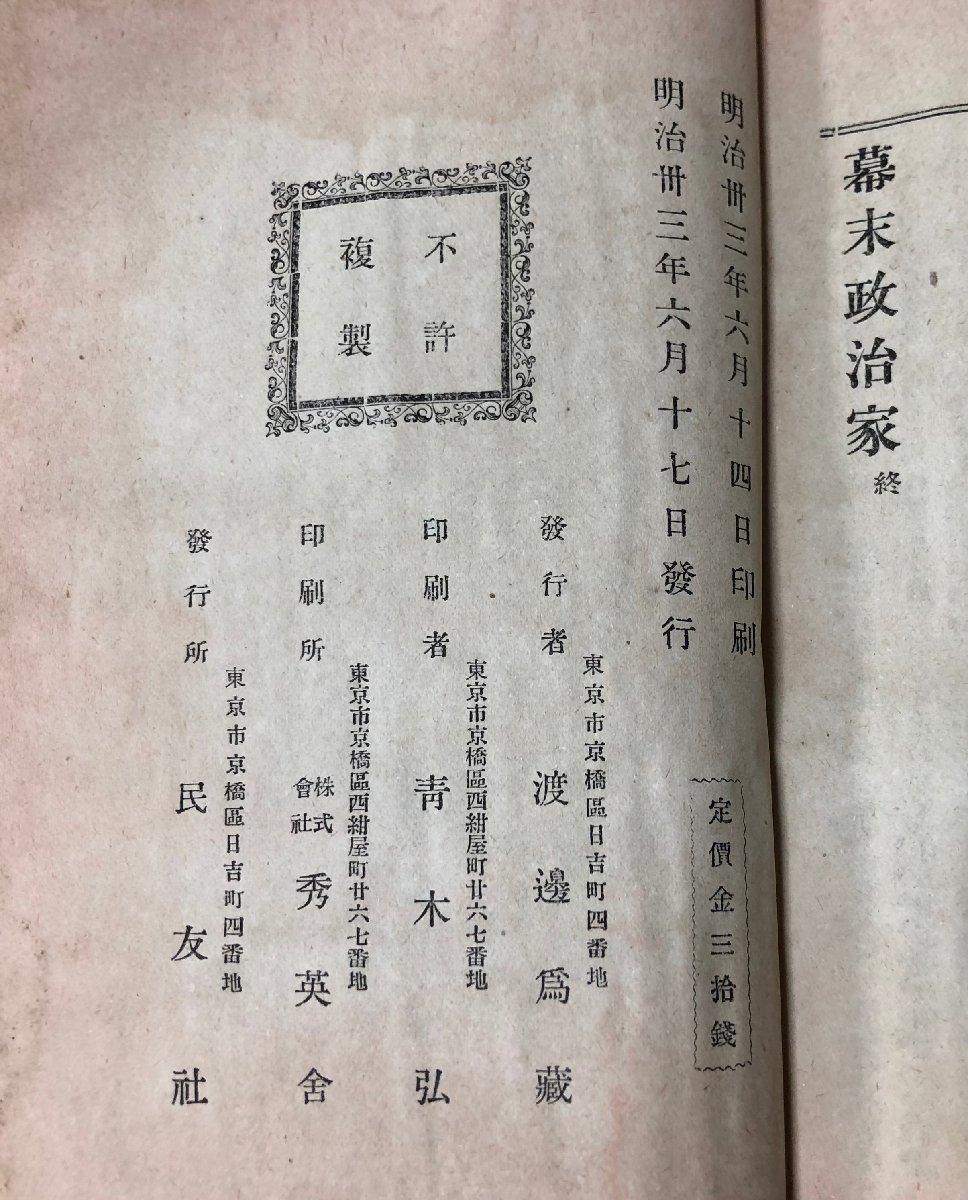 幕末政治家終
明治卅三年六月十四日印刷
明治卅三年六月十七日發行
定價金三拾錢
不許
複製
東京市京橋區日吉町四番地
發行者 渡邊爲藏
東京市京橋區西紺屋町廿六七番地
印刷者 靑木弘
東京市京橋區西紺屋町廿六七番地
印刷所 株式會社 秀英舍
東京市京橋區日吉町四番地
發行所 民友社